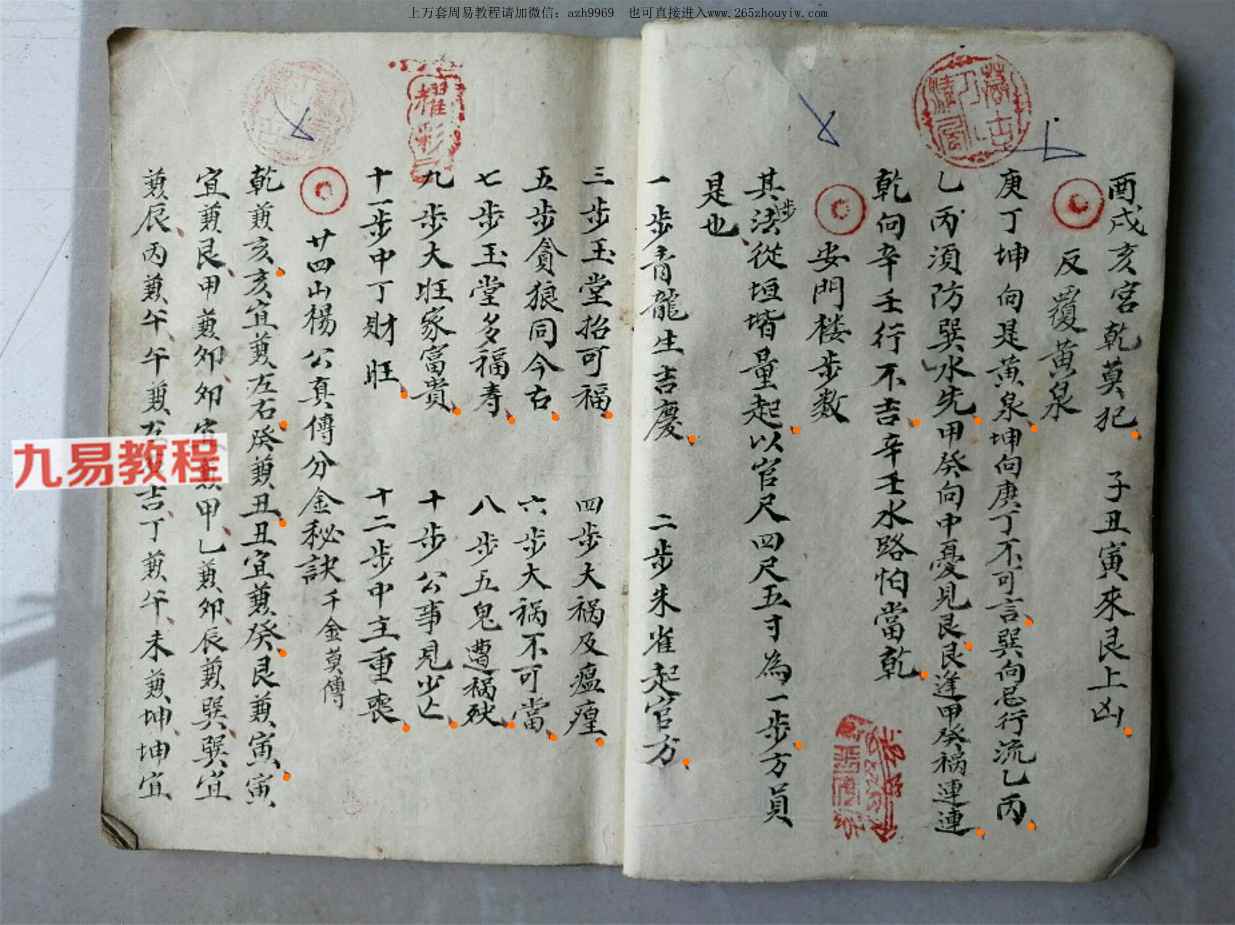 上万套周易教程请加微信：azh9969 也可直接进入www.265zhouyiw.com
酉戌亥宮乾莫犯 子丑寅來艮上凶
反覆黃泉
庚丁坤向是黃泉坤向庚丁不可言巽向忌行流乙丙
乙丙須防巽水先甲癸向中憂見艮艮逢甲癸禍連連
乾向辛壬行不吉辛壬水路怕當乾
安門楼步数
其步法從垣墻量起以官尺四尺五寸為一步方員
是也
一步青龍生吉慶 二步朱雀起官方
三步玉堂招可福 四步大禍及瘟瘟
五步貪狼同今古 六步大禍不可當
七步玉堂多福寿 八步五鬼遭禍殃
九步大旺家富貴 十步公事見少亡
十一步中丁財旺 十二步中主重喪
廿四山楊公真傳分金秘訣千金莫傳
乾兼亥亥宜兼左右癸兼丑丑宜兼癸艮兼寅寅
宜兼艮甲兼卯卯宜兼甲乙兼卯辰兼巽巽宜
兼辰丙兼午午兼吉丁兼午未兼坤坤宜
耀彩
九易教程